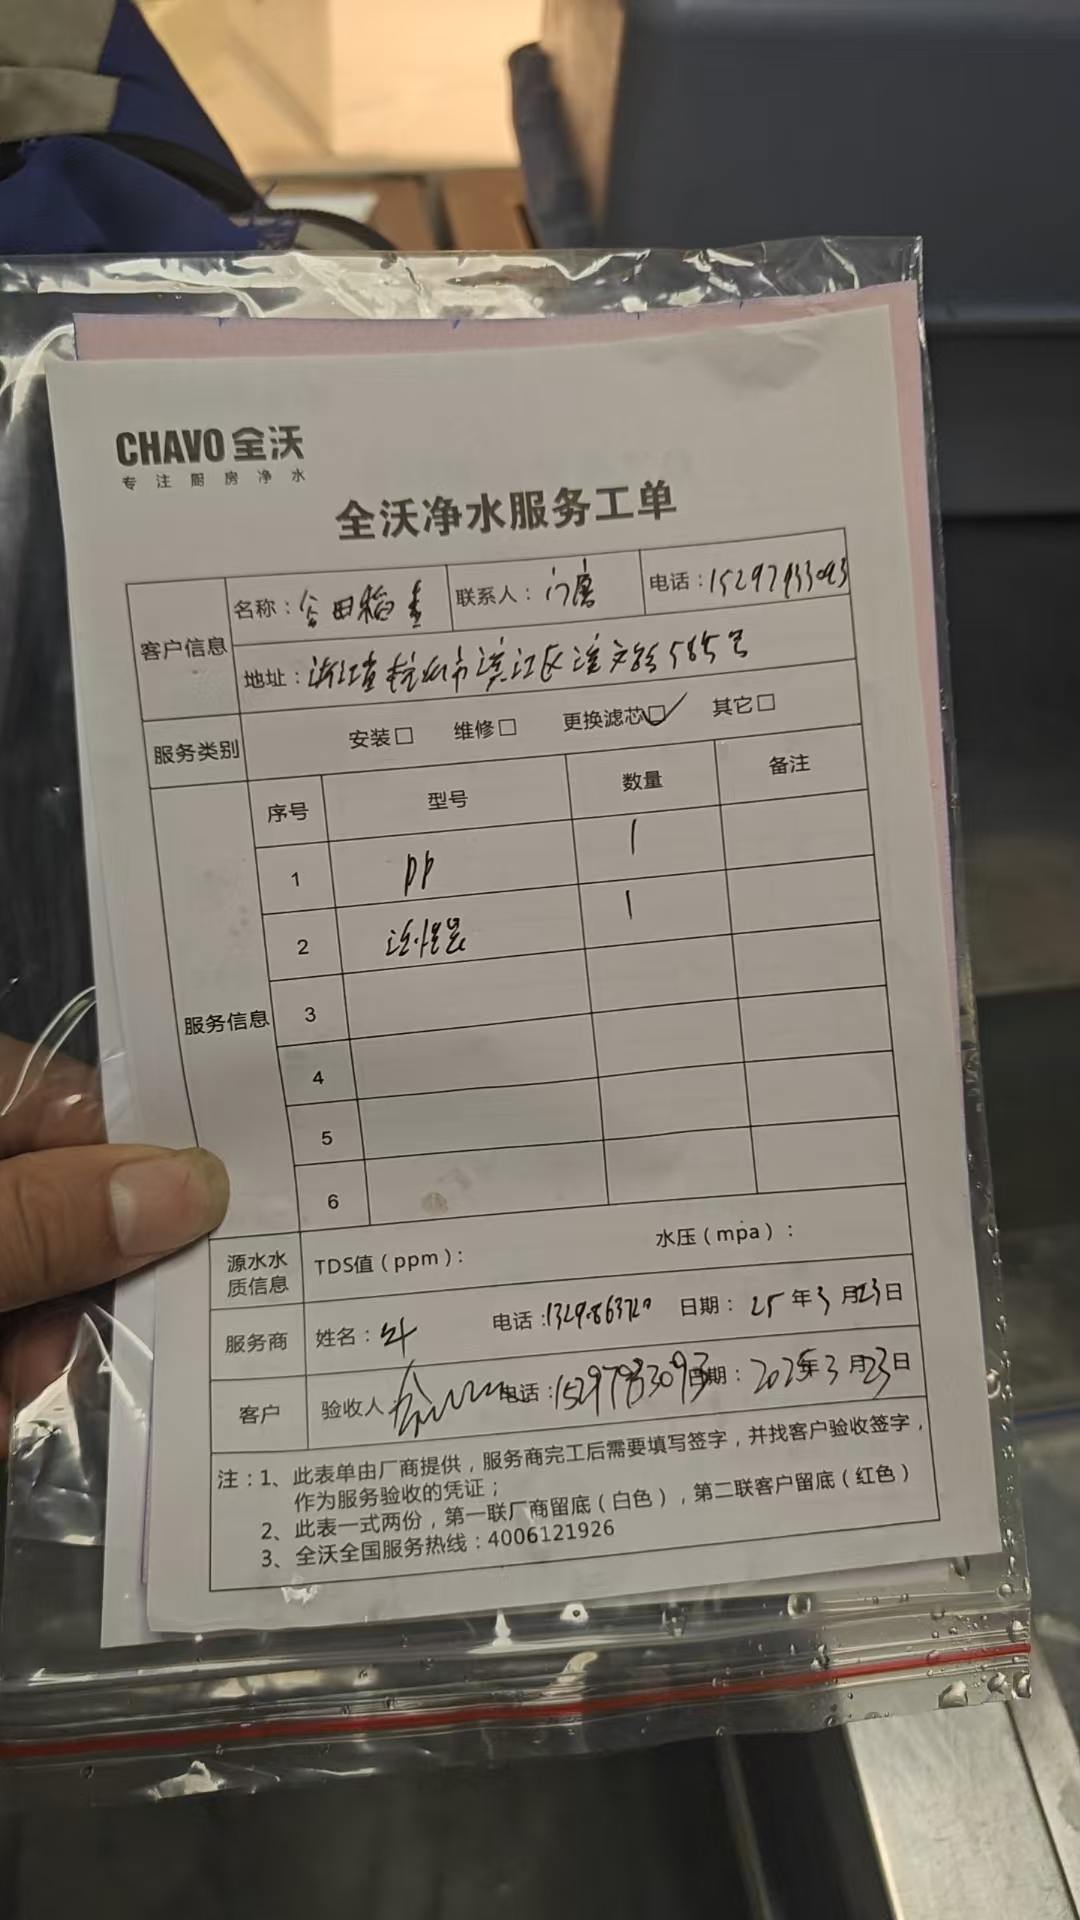 CHAVO 全沃
专注厨房净水
全沃净水服务工单
客户信息
名称：谷田稻香 联系人： 电话：15297933093
地址：浙江省杭州市滨江区滨文路585号
服务类别 安装□ 维修□ 更换滤芯□✓ 其它□
服务信息
序号 型号 数量 备注
1 PP 1
2 1
3
4
5
6
源水水质信息 TDS值（ppm）： 水压（mpa）：
服务商 姓名： 电话： 日期：25年3月23日
客户 验收人 电话：15297933093 日期：2025年3月23日
注：1、此表单由厂商提供，服务商完工后需要填写签字，并找客户验收签字，
作为服务验收的凭证；
2、此表一式两份，第一联厂商留底（白色），第二联客户留底（红色）
3、全沃全国服务热线：4006121926